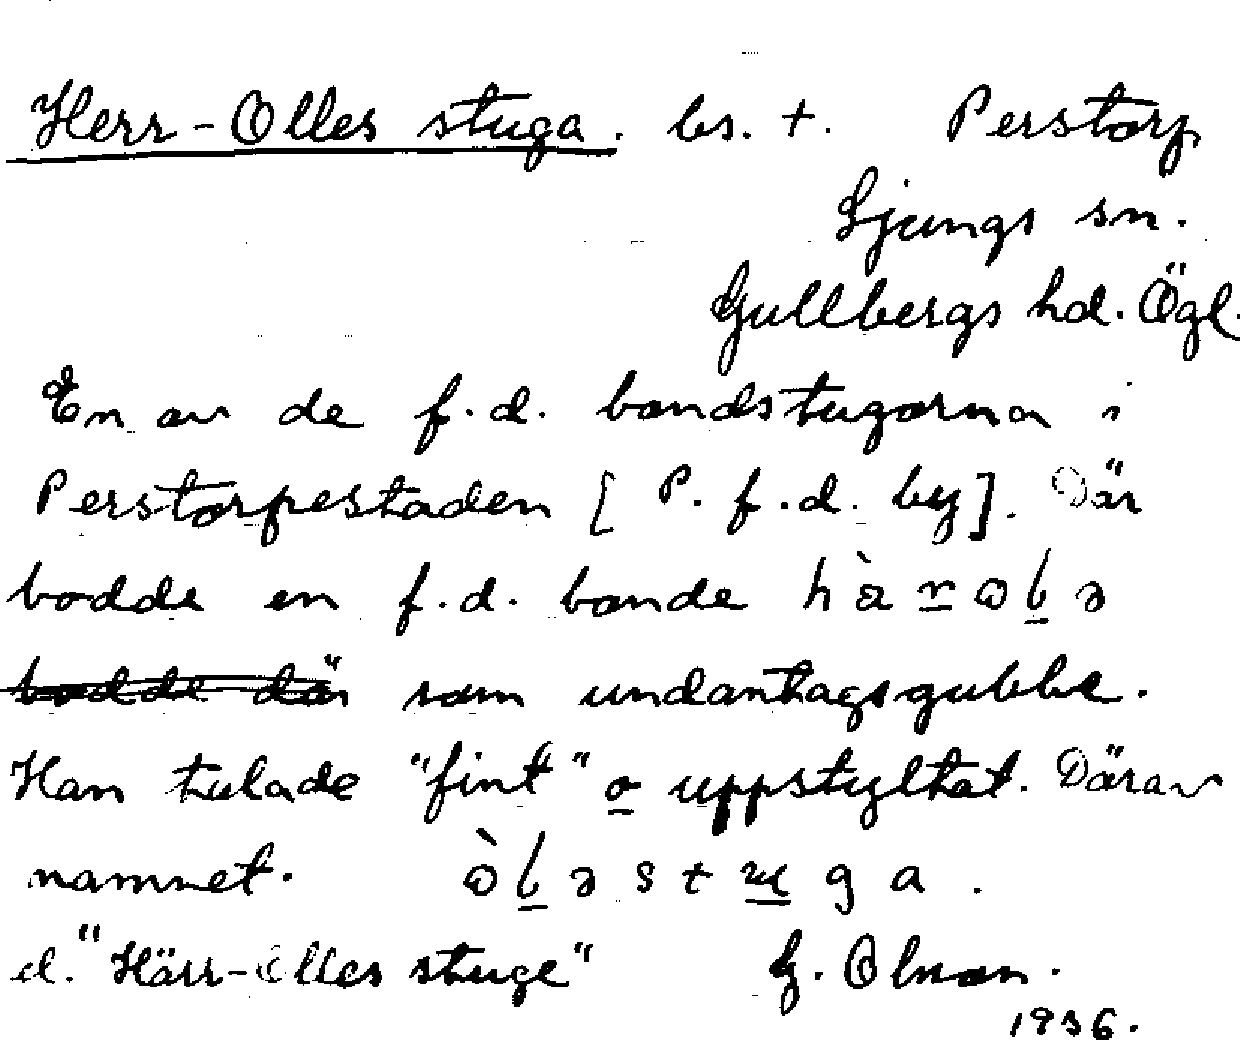 Herr-Olles stuga. bs. +. Perstorp
Ljungs sn.
Gullbergs hd. Ögl.
En av de f.d. bondstugorna i
Perstorpestaden [P. f.d. by]. Där
bodde en f.d. bonde
bodde där som undantagsgubbe.
Han talade "fint" o uppstyltat. Därav
namnet.
d. "Härr-Olles stuge" G.
1936.